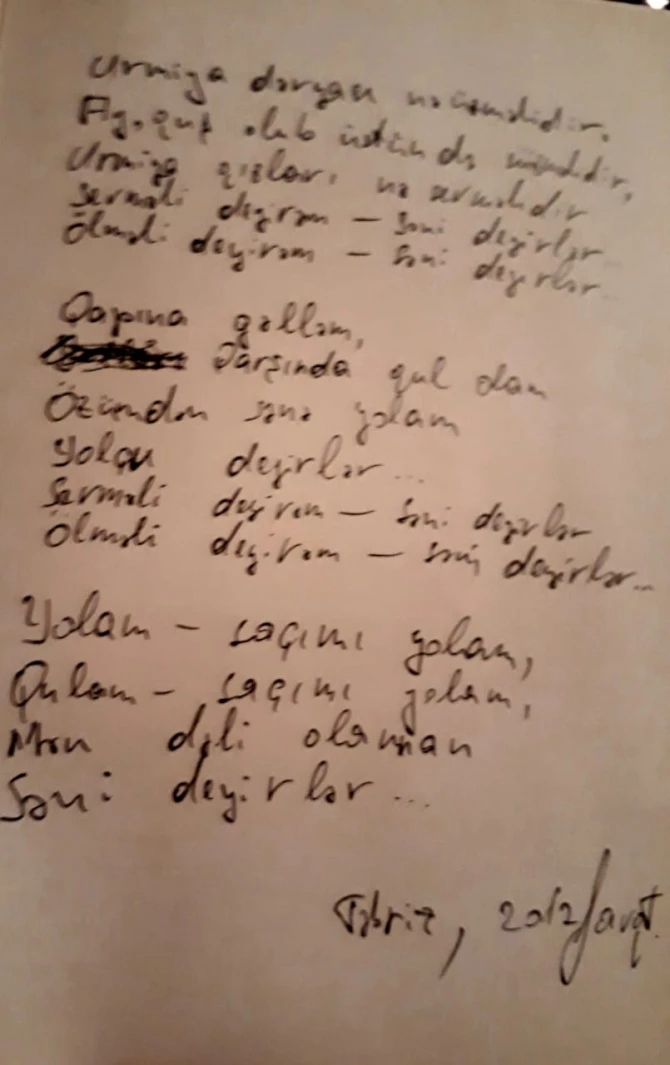 Urmiya dəryası nə
Ay, quş olub üstündə
Urmiya qızları nə sevməlidir
Sevməli deyirəm – səni deyirlər
Ölməli deyirəm – səni deyirlər...
Qapına gəlləm,
Qarşında qul olam
Özümdən sənə yolam
Yolçu deyirlər...
Sevməli deyirəm – səni deyirlər
Ölməli deyirəm – səni deyirlər...
Yolam – saçımı yolam,
Qulam – saçımı yolam,
Mən dəli olannan
Səni deyirlər...
Təbriz, 2012/avqt.